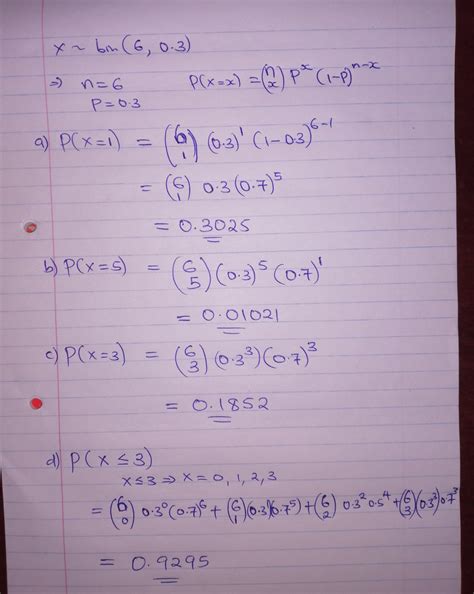 x ~ bin(6, 0.3)
⇒ n=6 P(X=x) = (n x) P^x (1-P)^{n-x}
P=0.3
a) P(X=1) = (6 1) (0.3)^1 (1-0.3)^{6-1}
= (6 1) 0.3 (0.7)^5
= 0.3025
b) P(X=5) = (6 5) (0.3)^5 (0.7)^1
= 0.01021
c) P(X=3) = (6 3) (0.3^3) (0.7)^3
= 0.1852
d) P(X ≤ 3)
X≤3 ⇒ X = 0, 1, 2, 3
= (6 0) 0.3^0 (0.7)^6 + (6 1) (0.3)^1 (0.7^5) + (6 2) 0.3^2 0.5^4 + (6 3) (0.3^3) 0.7^3
= 0.9295